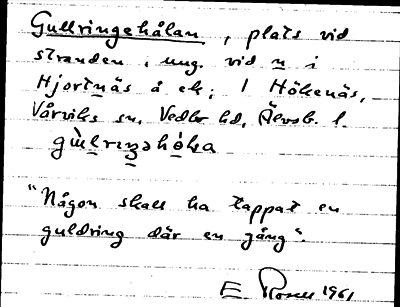 Gullringehålan, plats vid
stranden, ung. vid n i
Hjortnäs å ek; 1 Hökenäs,
Vårviks sn, Vedbo hd, Älvsb. l.
"Någon skall ha tappat en
guldring där en gång".
E 1961